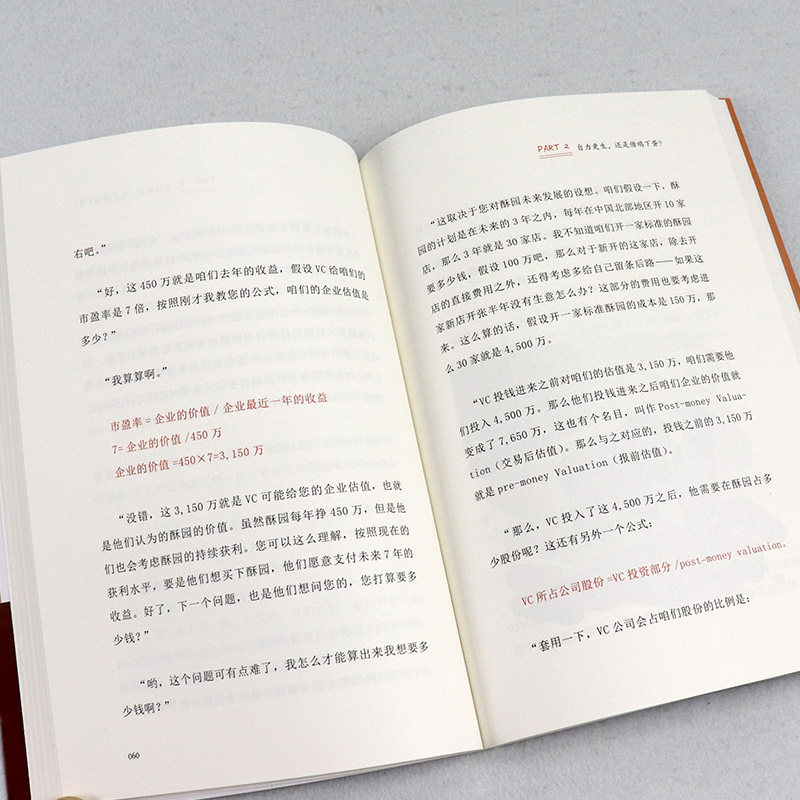 右吧。”
“好，这 450 万就是咱们去年的收益，假设 VC 给咱们的
市盈率是 7 倍，按照刚才我教您的公式，咱们的企业估值是
多少？”
“我算算啊。”
市盈率 = 企业的价值 / 企业最近一年的收益
7= 企业的价值 /450 万
企业的价值 =450×7=3,150 万
“没错，这 3,150 万就是 VC 可能给您的企业估值，也就
是他们认为的酥园的价值。虽然酥园每年挣 450 万，但是他
们也会考虑酥园的持续获利。您可以这么理解，按照现在的
获利水平，要是他们想买下酥园，他们愿意支付未来 7 年的
收益。好了，下一个问题，也是他们想问您的，您打算要多
少钱？”
“哟，这个问题可有点难了，我怎么才能算出来我想要多
少钱啊？”
060
PART 2 自力更生，还是借鸡下蛋？
“这取决于您对酥园未来发展的设想。咱们假设一下，酥
园的计划是在未来的 3 年之内，每年在中国北部地区开 10 家
店，那么 3 年就是 30 家店。我不知道咱们开一家标准的酥园
要多少钱，假设 100 万吧，那么对于新开的这家店，除去开
店的直接费用之外，还得考虑多给自己留条后路——如果这
家新店开张半年没有生意怎么办？这部分的费用也要考虑进
来。这么算的话，假设开一家标准酥园的成本是 150 万，那
么 30 家就是 4,500 万。
“VC 投钱进来之前对咱们的估值是 3,150 万，咱们需要他
们投入 4,500 万。那么他们投钱进来之后咱们企业的价值就
变成了 7,650 万，这也有个名目，叫作 Post-money Valua-
tion（交易后估值）。那么与之对应的，投钱之前的 3,150 万
就是 pre-money Valuation（报前估值）。
“那么，VC 投入了这 4,500 万之后，他需要在酥园占多
少股份呢？这还有另外一个公式：
VC 所占公司股份 =VC 投资部分 /post-money valuation。
“套用一下，VC 公司会占咱们股份的比例是：